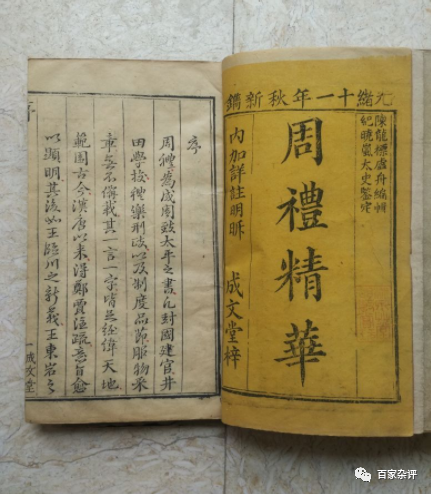 光緒十一年秋新鐫
陳龍標虛舟編輯
紀曉嵐太史鑒定
周禮精華
內加詳註明晰
成文堂梓
序
周禮為成周致太平之書凡封國建官井
田學校禮樂刑政以及制度品節服物采
章無不備哉其一言一字皆足經緯天地
範圍古今漢唐以來得鄭賈注疏意旨愈
以顯明其後如王臨川之新義王東岩之
序
一
成文堂
百家杂评